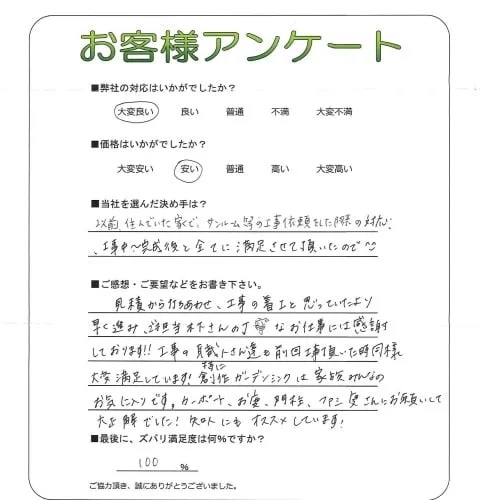 お客様アンケート
■弊社の対応はいかがでしたか？
大変良い 良い 普通 不満 大変不満
■価格はいかがでしたか？
大変安い 安い 普通 高い 大変高い
■当社を選んだ決め手は？
以前、住んでいた家で、サンルーム等の工事依頼をした際の対応、
、工事中〜完成後と全てに満足させて頂いたので
■ご感想・ご要望などをお書き下さい。
見積から打ちあわせ、工事の着工と思っていたより
早く進み、ご担当木下さんの丁寧なお仕事には感謝
しております!! 工事の職人さん達も前回工事頂いた時同様
大変満足しています! 特に創作ガーデンシンクは家族みんなの
お気に入りです。カーポート、お庭、門柱、さんにお願いして
大正解でした! 知人にもオススメしています!
■最後に、ズバリ満足度は何%ですか？
100 %
ご協力頂き、誠にありがとうございました。